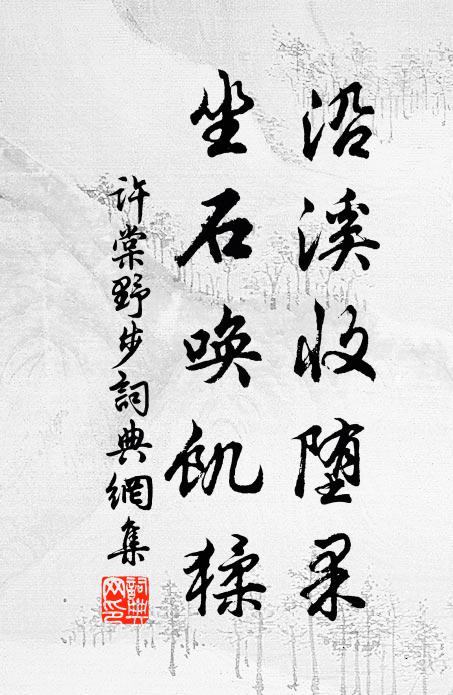 沿溪收墮果
坐石喚飢猱
許棠野步詞典網集